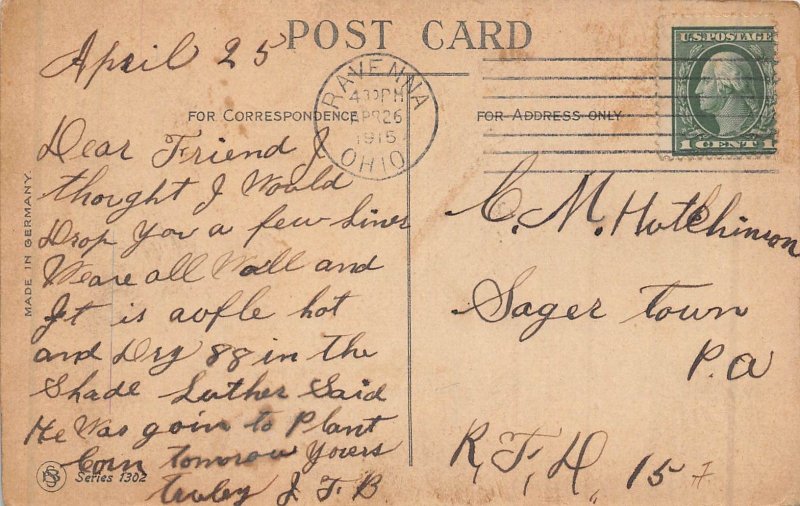 POST CARD
April 25
RAVENNA
430PM
APR 26
1915
OHIO
U.S. POSTAGE
1 CENT 1
FOR CORRESPONDENCE
FOR ADDRESS ONLY
Dear Friend I
thought I Would
Drop You a few Lines
We are all Well and
It is aufle hot
and Dry 88 in the
Shade Luther Said
He Was goin to Plant
Corn tomorow Yours
J. F. B
C. M. Hutchinson
Sager town
P.a
R, F, D, 15
MADE IN GERMANY.
Series 1302